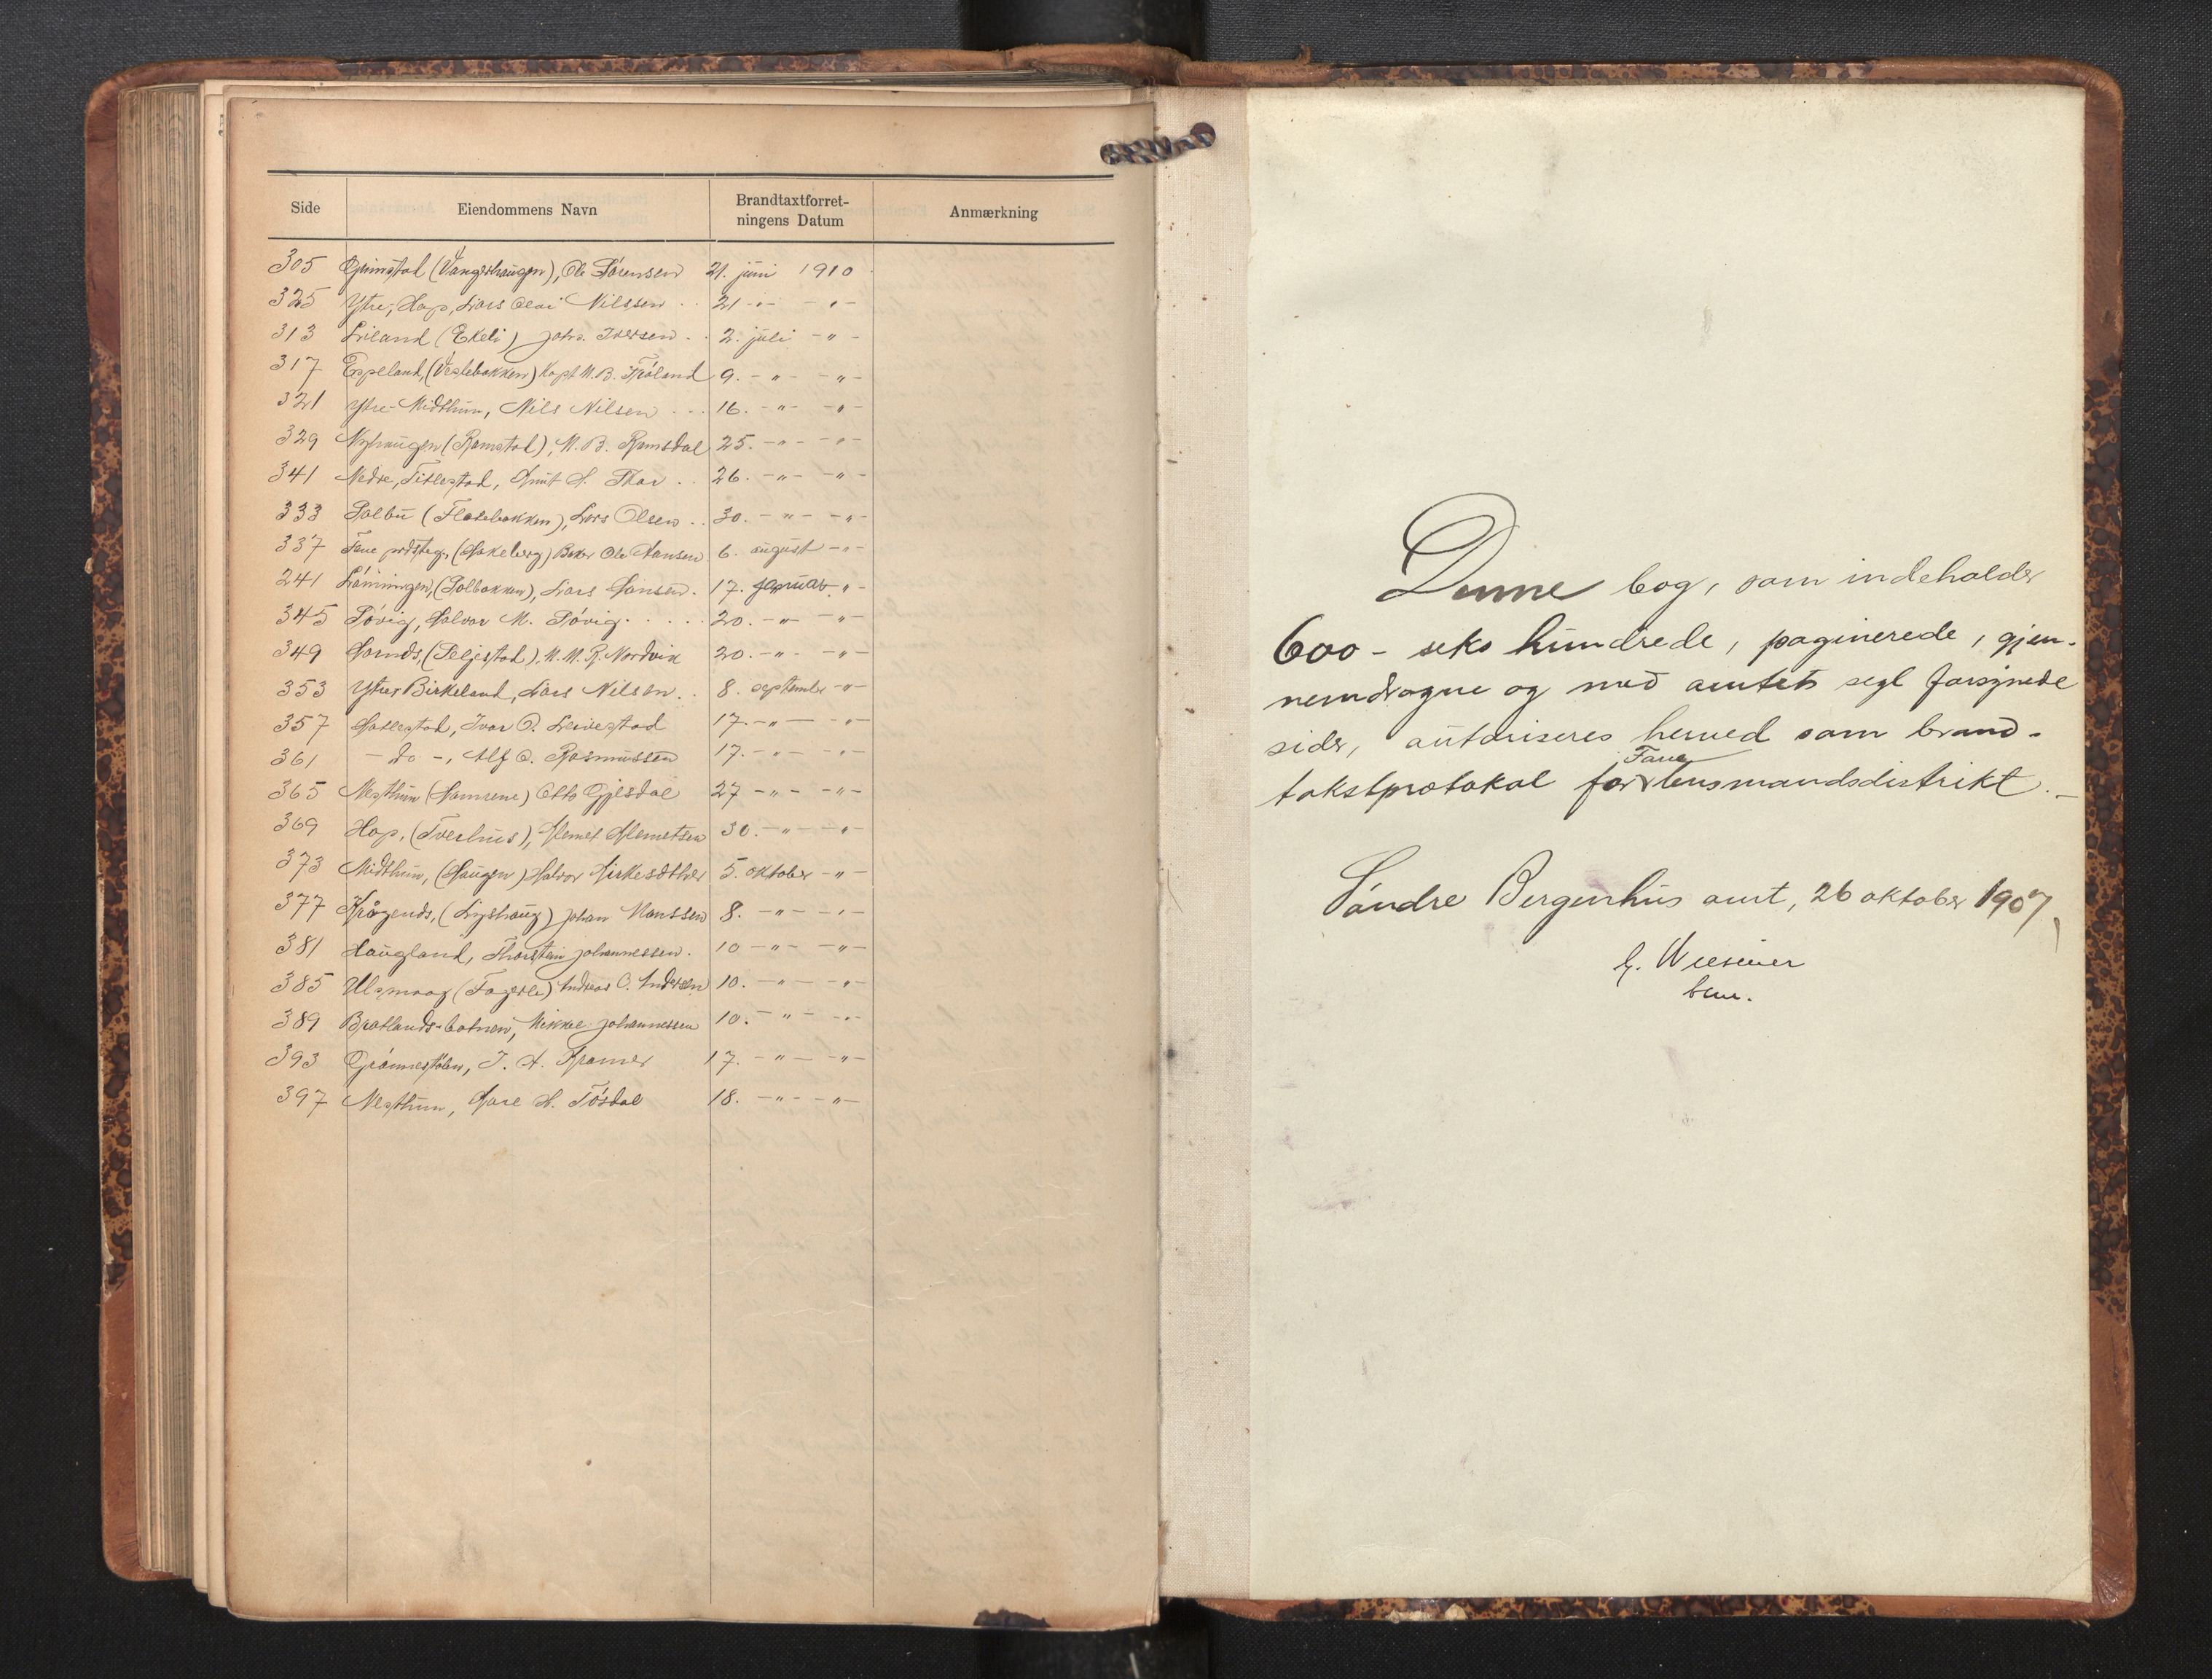 Side Eiendommens Navn Brandtaxtforret-
ningens Datum Anmærkning
305 Grimstad (Vangenhaugen), Ole Sørensen 21. juni 1910
325 Ytre-Hop, Lars Olai Nilssen . . 21 -"- -"-
313 Liland (Ekeli) Johs. Iversen . . 2. juli -"-
317 Espeland, (Vestebakken) Kapt M. B. 9. -"- -"-
321 Ytre-Midthun, Nils Nilsen . . . 16. -"- -"-
329 Nyhaugen (Ramstad), M. B. Ramsdal 25. -"- -"-
341 Nedre, Titlestad, Knut H. Thor . . 26. -"- -"-
333 Solbu (Flatebakken), Lars Olsen . . 30. -"- -"-
337 Fane (Hakeberg) Baker Ole Hansen 6. august -"-
241 Lønningen, (Solbakken), Lars Hansen . 17. januar "-
345 Søvig, Halvor M. Søvig . . . . . 20. -"- -"-
349 (Seljestad), M. M. R. Nordvik 20. -"- -"-
353 Ytre Birkeland, Lars Nilsen . . 8. september -"-
357 Hatlestad, Ivar O. Leivestad 17. -"- -"-
361 - do -, Alf O. Rasmussen 17. -"- -"-
365 Nesthun Otto Gjesdal 27 -"- -"-
369 Hop, (Tverhus), Klemet Klemetsen 30. -"- -"-
373 Midthun, (Haugen) Halvor 5. oktober -"-
377 (Lyshaug) Johan Monssen 8. -"- -"-
381 Haugland, Thorstein Johannessen . 10 -"- -"-
385 Ulsmaag (Fagerli) Andreas O. Andersen 10. -"- -"-
389 Bratlands-botnen, Mikkel Johannessen 10. -"- -"-
393 Grønnestølen, J. A. Kramer 17. -"- -"-
397 Nesthun, Kare H. Tøsdal 18. -"- -"-
Denne bog, som indeholder
600 - seks hundrede, paginerede, gjen-
nemdragne og med amtets segl forsynede
sider, autoriseres herved som brand-
Fane
takstprotokol for lensmandsdistrikt. -
Søndre Bergenhus amt, 26 oktober 1907,